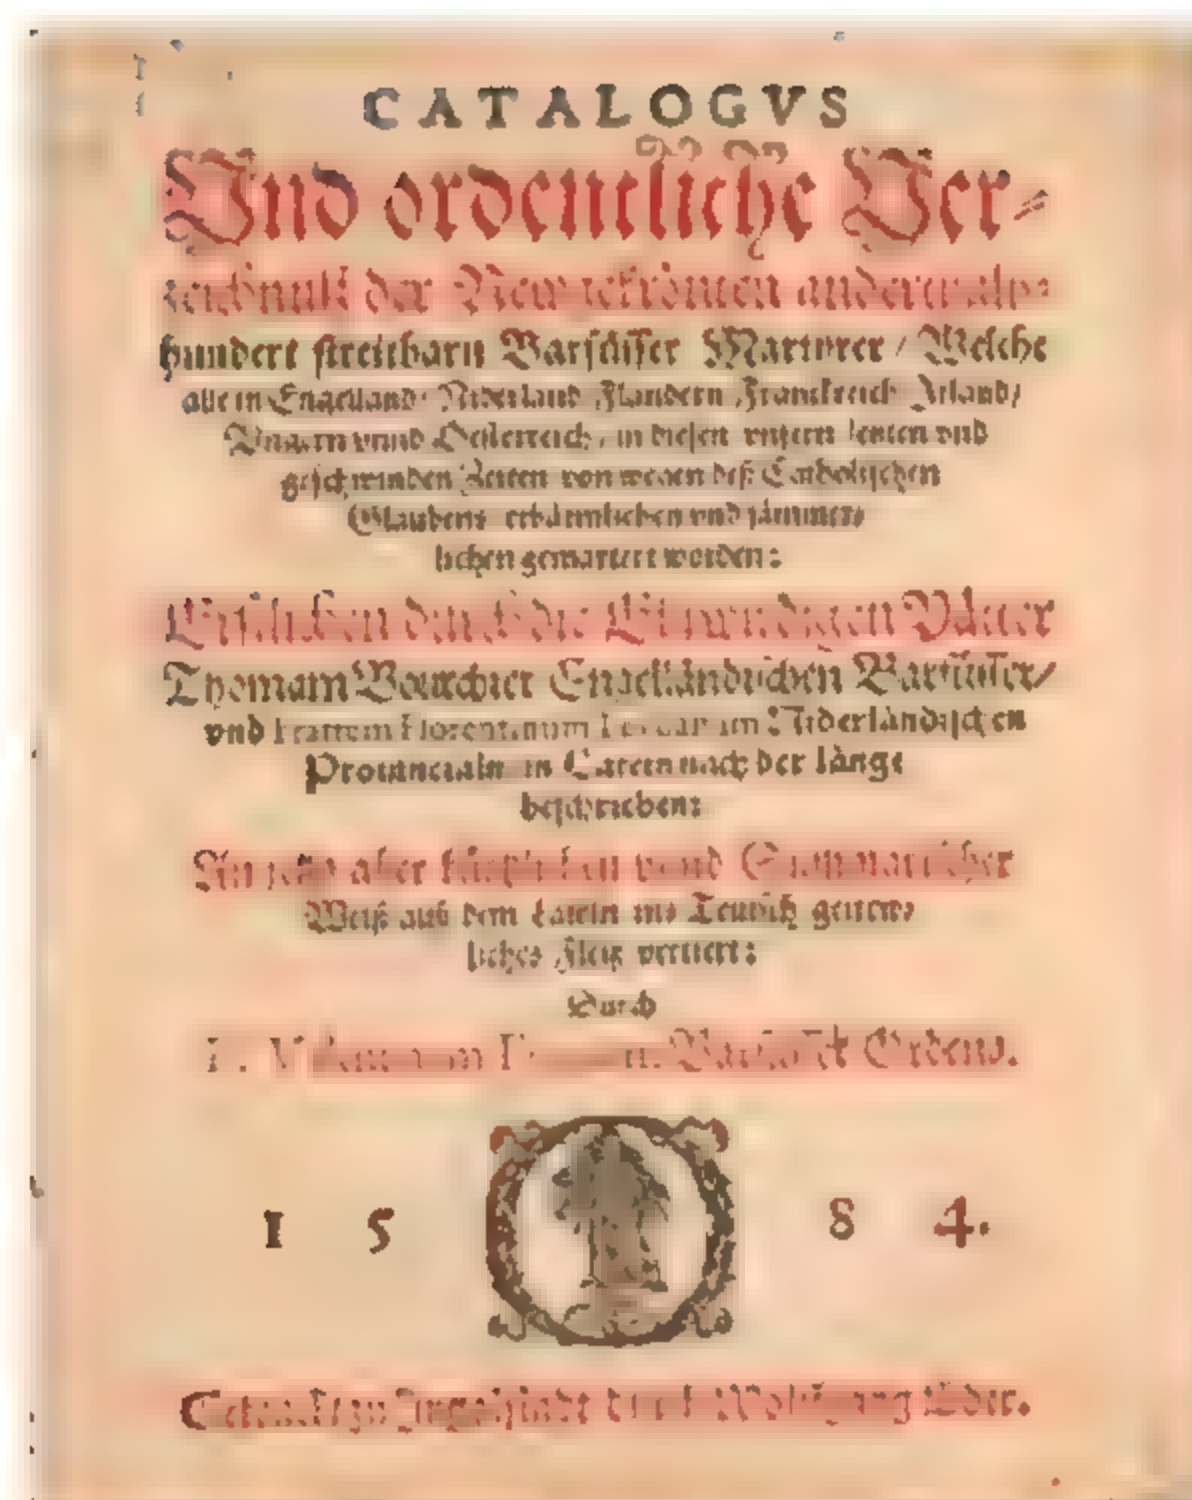 CATALOGVS
Vnd ordentliche Ver-
der andere
hundert streitbarn Barfüsser Martyrer / Welche
alle in Engelland Niderland Flandern Franckreich Irland/
Vngern vnnd Oesterreich, in diesen vnsern letsten vnd
geschwinden Zeiten von wegen deß Catholischen
Glaubens erbärmlichen vnd jämmer-
lichen gemartert worden:
Erstlichen durch die Ehrwürdigen Vätter
Thomam Bourchier Engelländischen Barfüsser/
vnd Fratrem Florentinum im Niderländischen
Prouincialn in Latein nach der länge
beschrieben:
An jetzt aber vnnd Summarischer
Weiß auß dem Latein ins Teutsch
liches Fleiß vertiert:
Durch
F. Ordens.
1 5 8 4.
Getruckt zu Ingolstadt durch Wolffgang Eder.